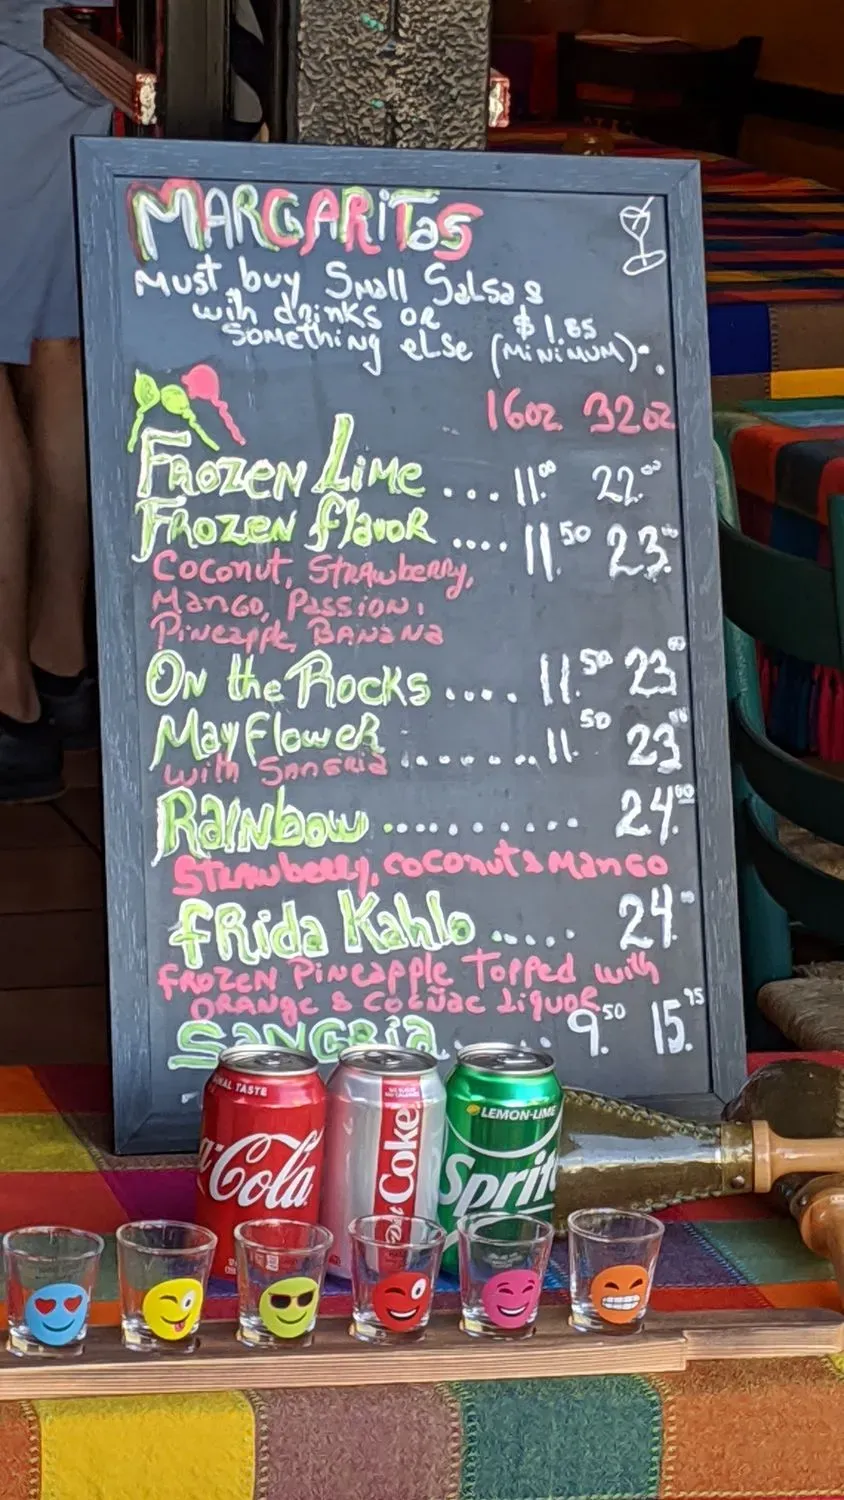 MARGARITAS
Must buy Small Salsas
wih drinks or $1.85
Something else (MiNiMUM).
16oz 32oz
FROZEN Lime .... 11.00 22.00
FROZEN flavoR .... 11.50 23.00
Coconut, STRAwberry,
MANGO, PASSiON,
Pineapple, BANANA
ON the Rocks .... 11.50 23.00
MayfloweR ....... 11.50 23.00
with SANGRIA
RAiNbow .......... 24.00
STRAwberry, coconut & MANGO
fRida Kahlo ..... 24.00
FROZEN PiNeapple Topped with
ORANGE & COGÑAC LiquoR
SANGRIA ...... 9.50 15.95
ORIGINAL TASTE
Coca-Cola
Diet Coke
LEMON-LIME
Sprite